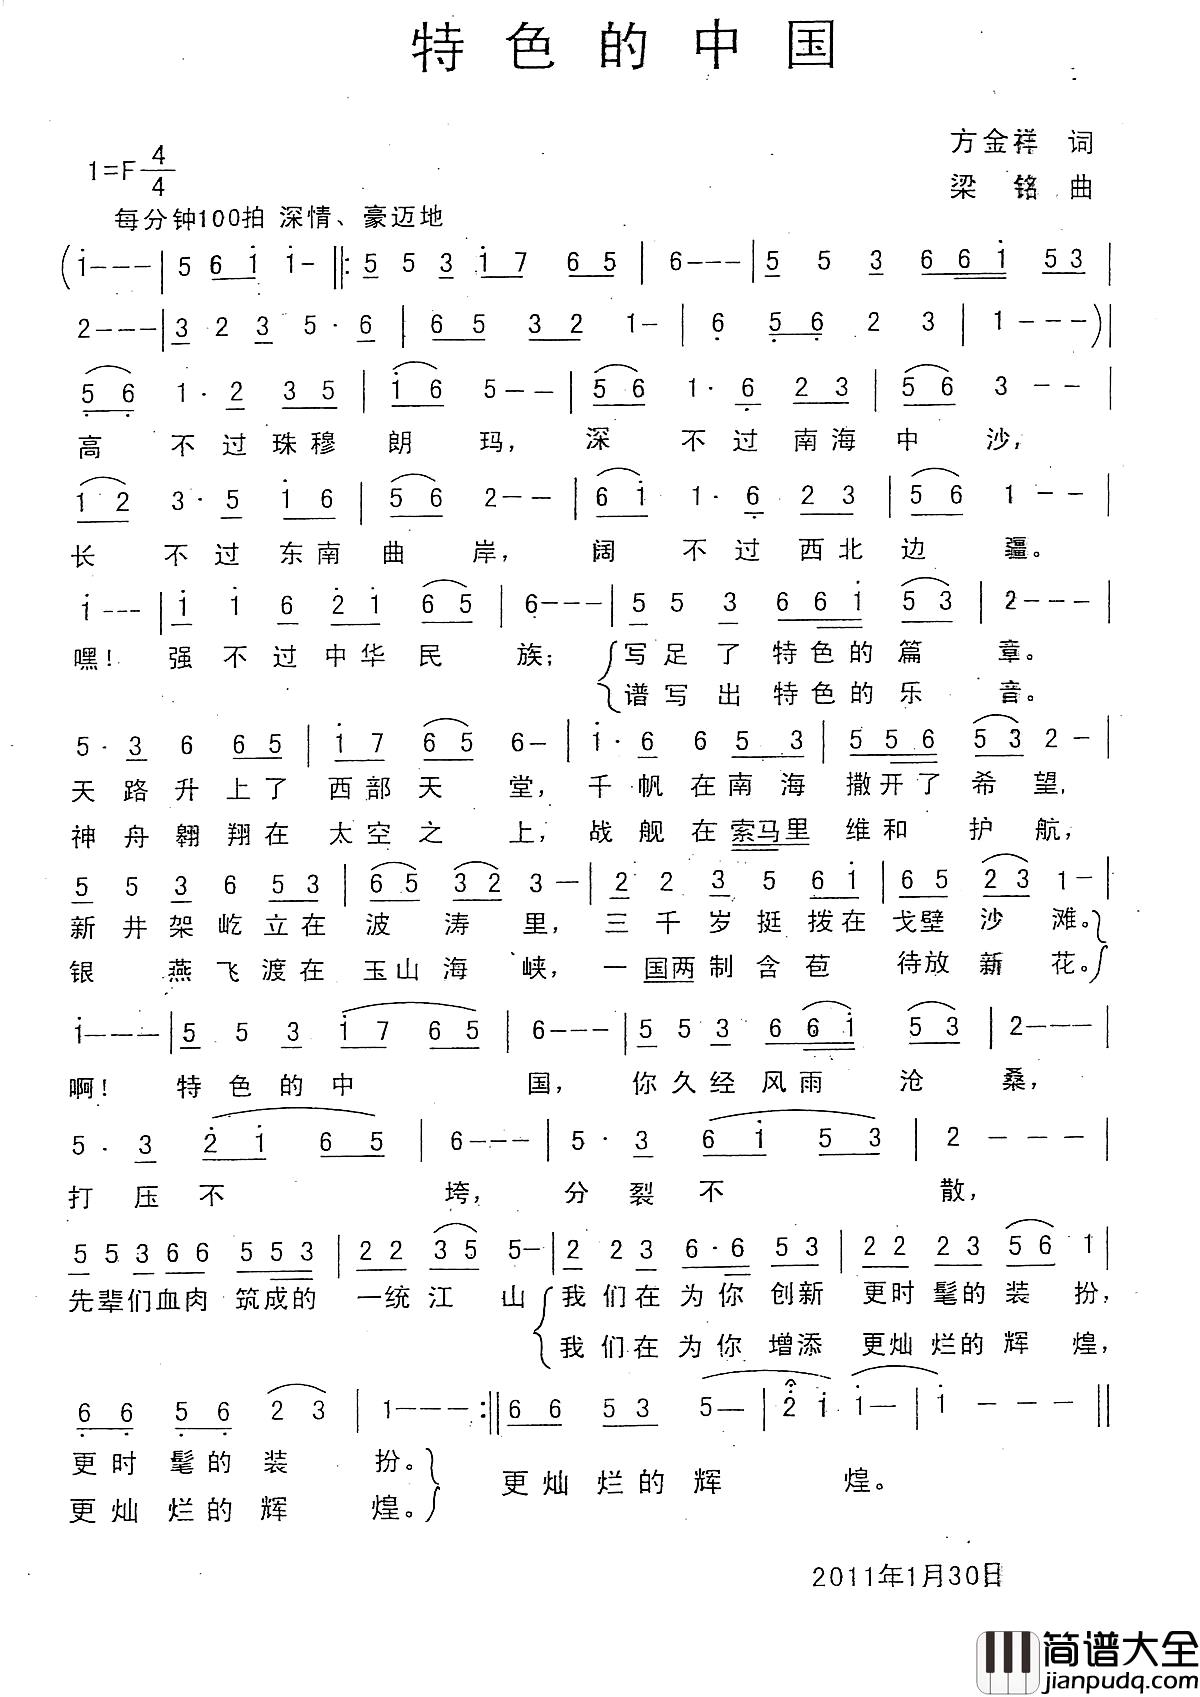 特色的中国
方金祥 词
1=F 4/4
梁铭 曲
每分钟100拍 深情、豪迈地
(i---|5 6 i i-‖:5 5 3 i 7 6 5|6---|5 5 3 6 6 i 5 3|
2---|3 2 3 5·6|6 5 3 2 1-|6 5 6 2 3|1---)|
5 6 1·2 3 5|i 6 5--|5 6 1·6 2 3|5 6 3--|
高 不过珠穆朗玛，深 不过南海中沙，
1 2 3·5 i 6|5 6 2--|6 i 1·6 2 3|5 6 1--|
长 不过东南曲岸，阔 不过西北边疆。
i---|i i 6 2 i 6 5|6---|5 5 3 6 6 i 5 3|2---|
嘿！强不过中华民族；写足了特色的篇章。
谱写出特色的乐音。
5·3 6 6 5|i 7 6 5 6-|i·6 6 5 3|5 5 6 5 3 2-|
天路升上了西部天堂，千帆在南海撒开了希望，
神舟翱翔在太空之上，战舰在索马里维和护航，
5 5 3 6 5 3|6 5 3 2 3-|2 2 3 5 6 i|6 5 2 3 1-|
新井架屹立在波涛里，三千岁挺拨在戈壁沙滩。
银燕飞渡在玉山海峡，一国两制含苞待放新花。
i---|5 5 3 i 7 6 5|6---|5 5 3 6 6 i 5 3|2---|
啊！特色的中国，你久经风雨沧桑，
5·3 2 i 6 5|6---|5·3 6 i 5 3|2---|
打压不垮，分裂不散，
5 5 3 6 6 5 5 3|2 2 3 5 5-|2 2 3 6·6 5 3|2 2 2 3 5 6 1|
先辈们血肉筑成的一统江山 我们在为你创新更时髦的装扮，
我们在为你增添更灿烂的辉煌，
6 6 5 6 2 3|1---:‖6 6 5 3 5-|2 i i-|i---‖
更时髦的装扮。
更灿烂的辉煌。
更灿烂的辉煌。
2011年1月30日
简谱大全
jianpudq.com